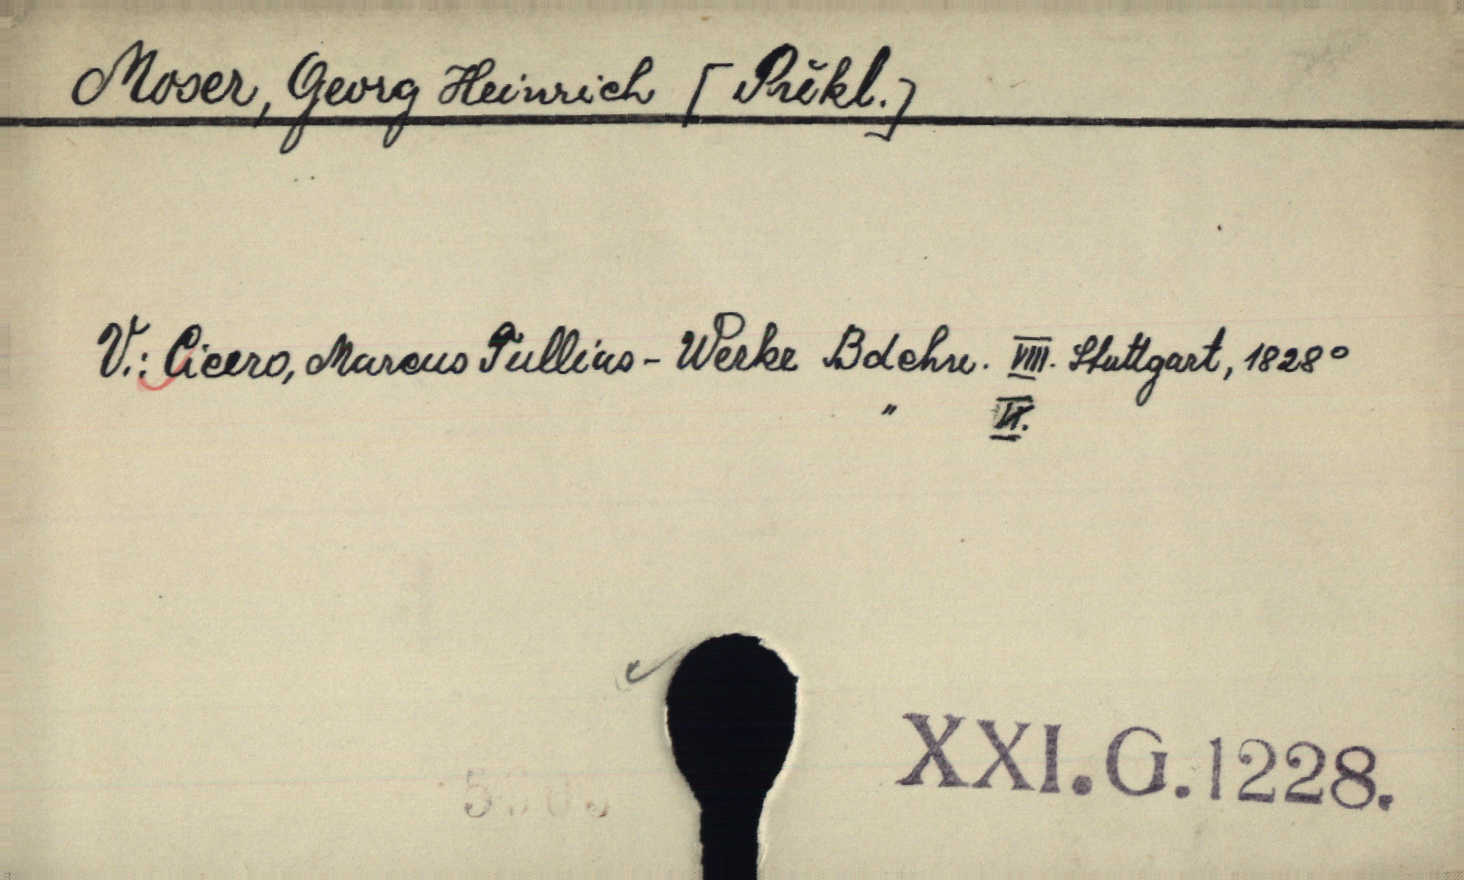 Moser, Georg Heinrich [Překl.]
V.: Cicero, Marcus Tullius - Werke Bdchn. VIII. Stuttgart, 1828°
"
XXI.G.1228.